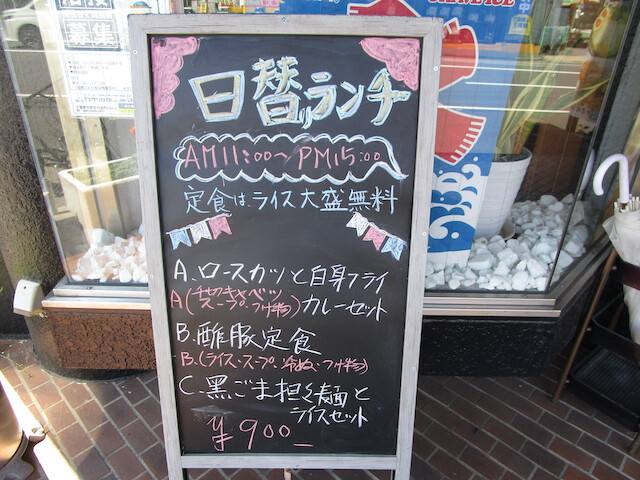 日替りランチ
AM11:00～PM15:00
定食は、ライス大盛無料
A.ロースカツと白身フライ
A(千切キャベツ スープ、つけ物)カレーセット
B.酢豚定食
B.(ライス・スープ、冷奴・つけ物)
C.黒ごま担々麺と
ライスセット
¥900_
募集